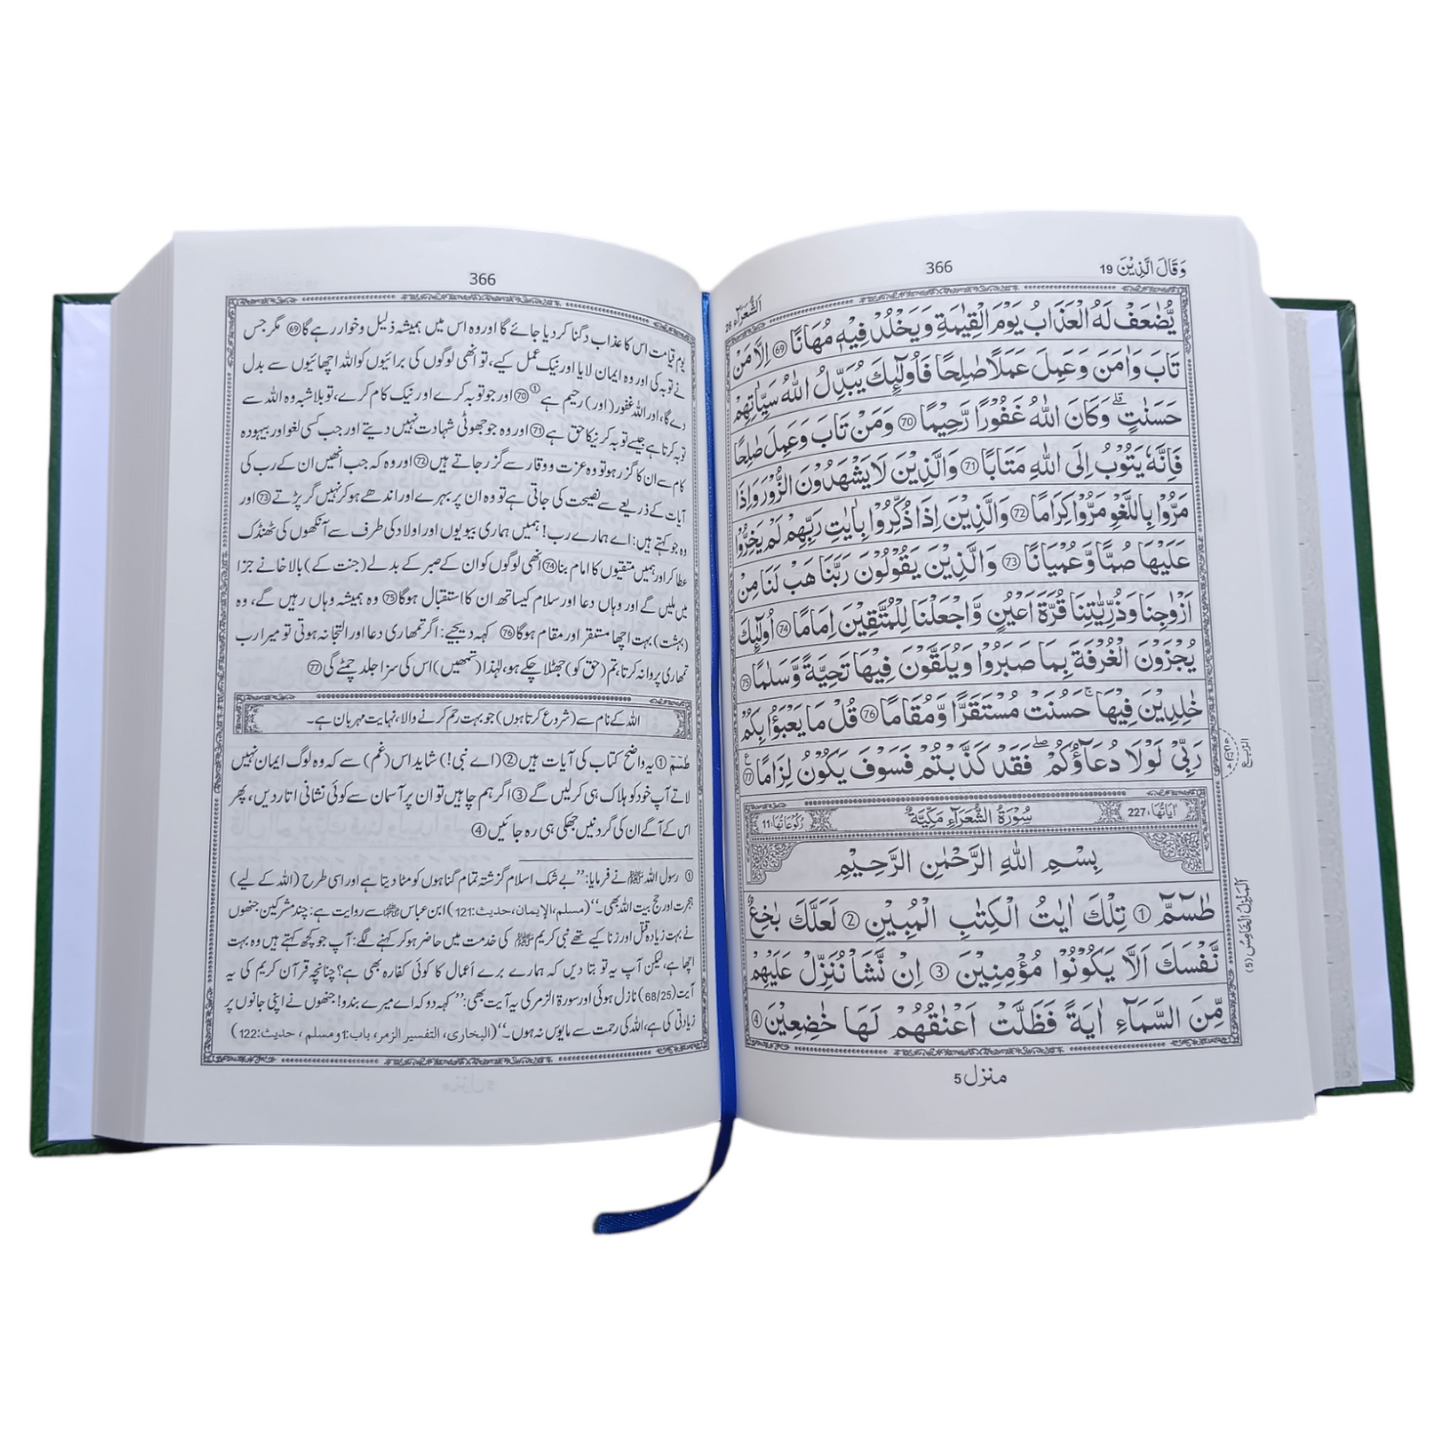 وَقَالَ الَّذِیْنَ 19
366
اَلشُّعَرَآء 26
یُّضٰعَفْ لَهُ الْعَذَابُ یَوْمَ الْقِیٰمَةِ وَیَخْلُدْ فِیْهٖ مُهَانًا ﴿69﴾ اِلَّا مَنْ
تَابَ وَاٰمَنَ وَعَمِلَ عَمَلًا صَالِحًا فَاُولٰٓئِكَ یُبَدِّلُ اللّٰهُ سَیِّاٰتِهِمْ
حَسَنٰتٍ ؕ وَكَانَ اللّٰهُ غَفُوْرًا رَّحِیْمًا ﴿70﴾ وَمَنْ تَابَ وَعَمِلَ صَالِحًا
فَاِنَّهٗ یَتُوْبُ اِلَی اللّٰهِ مَتَابًا ﴿71﴾ وَالَّذِیْنَ لَا یَشْهَدُوْنَ الزُّوْرَ وَاِذَا
مَرُّوْا بِاللَّغْوِ مَرُّوْا كِرَامًا ﴿72﴾ وَالَّذِیْنَ اِذَا ذُكِّرُوْا بِاٰیٰتِ رَبِّهِمْ لَمْ یَخِرُّوْا
عَلَیْهَا صُمًّا وَّعُمْیَانًا ﴿73﴾ وَالَّذِیْنَ یَقُوْلُوْنَ رَبَّنَا هَبْ لَنَا مِنْ
اَزْوَاجِنَا وَذُرِّیّٰتِنَا قُرَّةَ اَعْیُنٍ وَّاجْعَلْنَا لِلْمُتَّقِیْنَ اِمَامًا ﴿74﴾ اُولٰٓئِكَ
یُجْزَوْنَ الْغُرْفَةَ بِمَا صَبَرُوْا وَیُلَقَّوْنَ فِیْهَا تَحِیَّةً وَّسَلٰمًا ﴿75﴾
خٰلِدِیْنَ فِیْهَا ؕ حَسُنَتْ مُسْتَقَرًّا وَّمُقَامًا ﴿76﴾ قُلْ مَا یَعْبَؤُا بِكُمْ
رَبِّیْ لَوْلَا دُعَآؤُكُمْ ۚ فَقَدْ كَذَّبْتُمْ فَسَوْفَ یَكُوْنُ لِزَامًا ﴿77﴾
اٰیَاتُهَا: 227 سُوْرَةُ الشُّعَرَآءِ مَكِّیَّةٌ رُكُوْعَاتُهَا: 11
بِسْمِ اللّٰهِ الرَّحْمٰنِ الرَّحِیْمِ
طٰسٓمّٓ ﴿1﴾ تِلْكَ اٰیٰتُ الْكِتٰبِ الْمُبِیْنِ ﴿2﴾ لَعَلَّكَ بَاخِعٌ
نَّفْسَكَ اَلَّا یَكُوْنُوْا مُؤْمِنِیْنَ ﴿3﴾ اِنْ نَّشَاْ نُنَزِّلْ عَلَیْهِمْ
مِّنَ السَّمَآءِ اٰیَةً فَظَلَّتْ اَعْنَاقُهُمْ لَهَا خٰضِعِیْنَ ﴿4﴾
اَلْمَنْزِلُ الْخَامِسُ (5)
منزل 5
366
یوم قیامت اس کا عذاب دگنا کر دیا جائے گا اور وہ اس میں ہمیشہ ذلیل و خوار رہے گا ﴿69﴾ مگر جس
نے توبہ کی اور وہ ایمان لایا اور نیک عمل کیے، تو انھی لوگوں کی برائیوں کو اللہ اچھائیوں سے بدل
دے گا، اور اللہ غفور (اور) رحیم ہے① ﴿70﴾ اور جو توبہ کرے اور نیک کام کرے، تو بلاشبہ وہ اللہ سے
توبہ کرتا ہے جیسے توبہ کرنے کا حق ہے ﴿71﴾ اور وہ جو جھوٹی شہادت نہیں دیتے اور جب کسی لغو اور بیہودہ
کام سے ان کا گزر ہو تو وہ عزت و وقار سے گزر جاتے ہیں ﴿72﴾ اور وہ کہ جب انھیں ان کے رب کی
آیات کے ذریعے سے نصیحت کی جاتی ہے تو وہ ان پر بہرے اور اندھے ہو کر نہیں گر پڑتے ﴿73﴾ اور
وہ جو کہتے ہیں: اے ہمارے رب! ہمیں ہماری بیویوں اور اولاد کی طرف سے آنکھوں کی ٹھنڈک
عطا کر اور ہمیں متقیوں کا امام بنا ﴿74﴾ انھی لوگوں کو ان کے صبر کے بدلے (جنت کے) بالا خانے جزا
میں ملیں گے اور وہاں دعا اور سلام کیساتھ ان کا استقبال ہوگا ﴿75﴾ وہ ہمیشہ وہاں رہیں گے، وہ
(بہشت) بہت اچھا مستقر اور مقام ہوگا ﴿76﴾ کہہ دیجیے: اگر تمھاری دعا اور التجا نہ ہوتی تو میرا رب
تمھاری پروا نہ کرتا، تم (حق کو) جھٹلا چکے ہو، لہٰذا (تمھیں) اس کی سزا جلد چمٹے گی ﴿77﴾
اللہ کے نام سے (شروع کرتا ہوں) جو بہت رحم کرنے والا، نہایت مہربان ہے۔
طٰسٓمّٓ ﴿1﴾ یہ واضح کتاب کی آیات ہیں ﴿2﴾ (اے نبی!) شاید اس (غم) سے کہ وہ لوگ ایمان نہیں
لاتے آپ خود کو ہلاک ہی کر لیں گے ﴿3﴾ اگر ہم چاہیں تو ان پر آسمان سے کوئی نشانی اتار دیں، پھر
اس کے آگے ان کی گردنیں جھکی ہی رہ جائیں ﴿4﴾
① رسول اللہ ﷺ نے فرمایا: ”بے شک اسلام گزشتہ تمام گناہوں کو مٹا دیتا ہے اور اسی طرح (اللہ کے لیے)
ہجرت اور حج بیت اللہ بھی۔“ (مسلم، الإیمان، حدیث: 121) ابن عباس سے روایت ہے: چند مشرکین جنھوں
نے بہت زیادہ قتل اور زنا کیے تھے نبی کریم ﷺ کی خدمت میں حاضر ہو کر کہنے لگے: آپ جو کچھ کہتے ہیں وہ بہت
اچھا ہے، لیکن آپ یہ تو بتا دیں کہ ہمارے برے اعمال کا کوئی کفارہ بھی ہے؟ چنانچہ قرآن کریم کی یہ
آیت (68/25) نازل ہوئی اور سورۃ الزمر کی یہ آیت بھی: ”کہہ دو کہ اے میرے بندو! جنھوں نے اپنی جانوں پر
زیادتی کی ہے، اللہ کی رحمت سے مایوس نہ ہوں۔“ (البخاری، التفسیر الزمر، باب: 1 و مسلم، حدیث: 122)